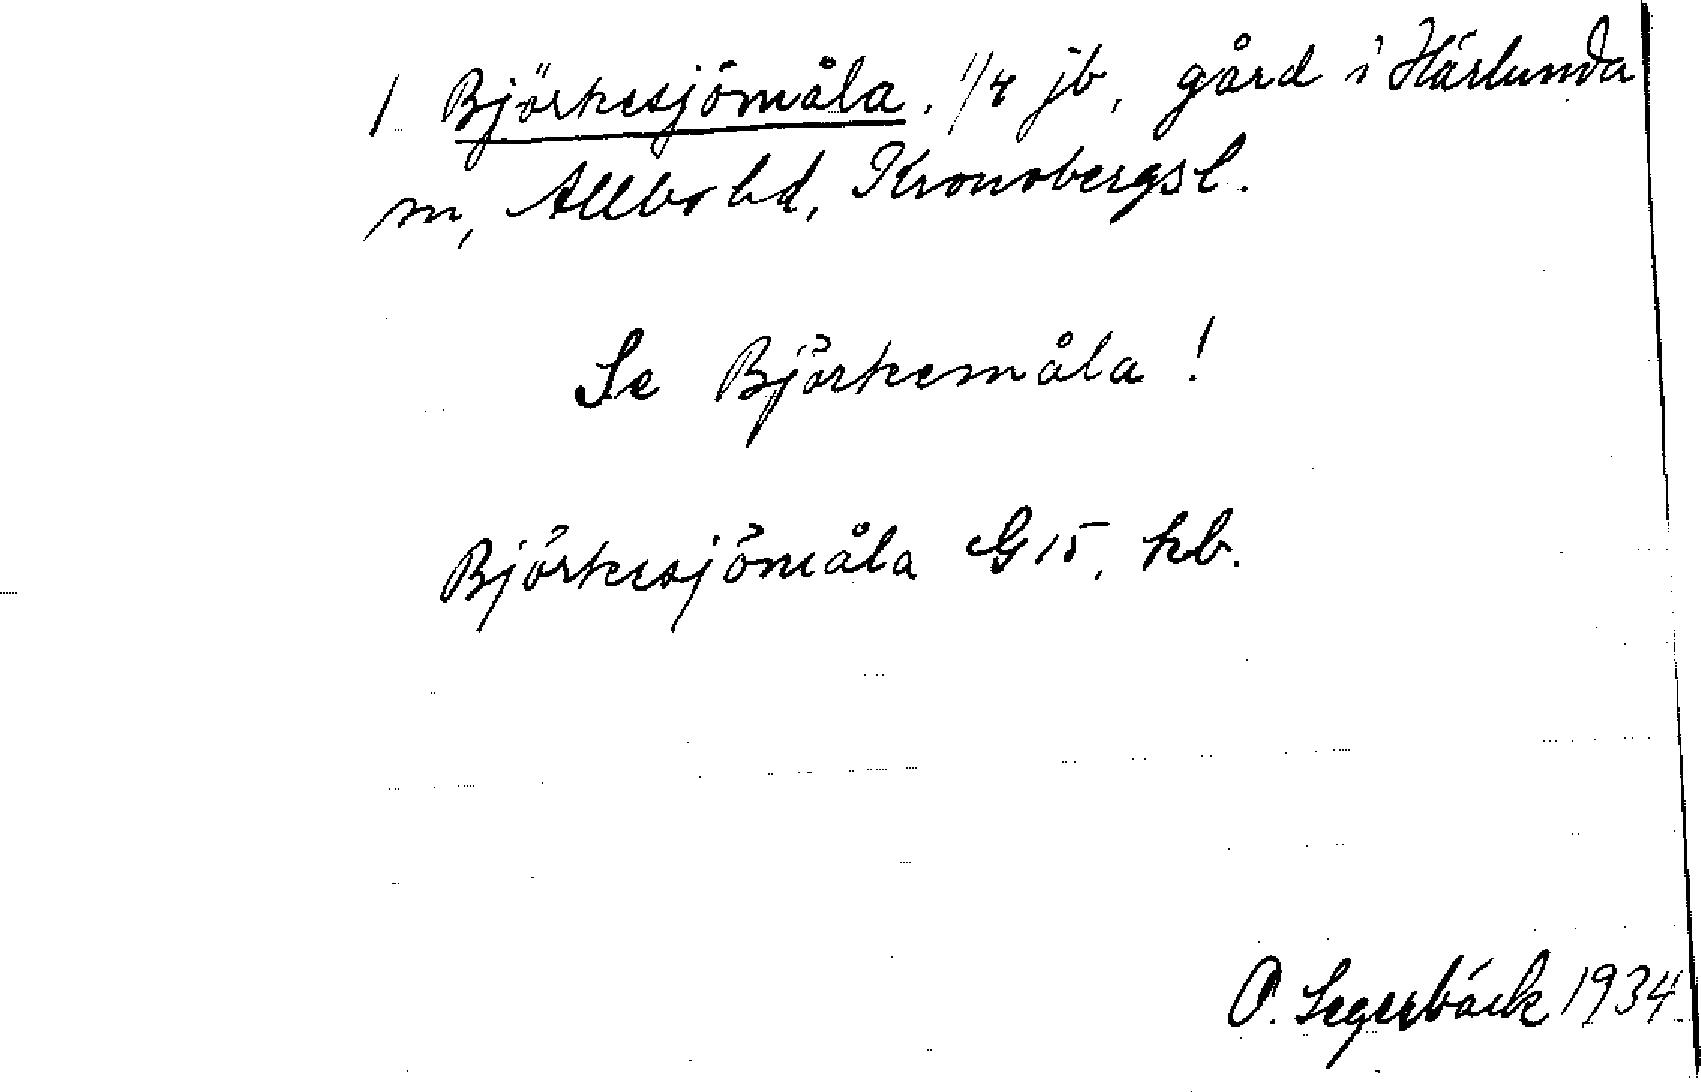 1 Björkesjömåla. 1/4 jb, gård i Härlunda
sn, Allbo hd, Kronobergs l.
Se Björkemåla!
Björkesjömåla G 15, kb.
O. Segerbäck 1934